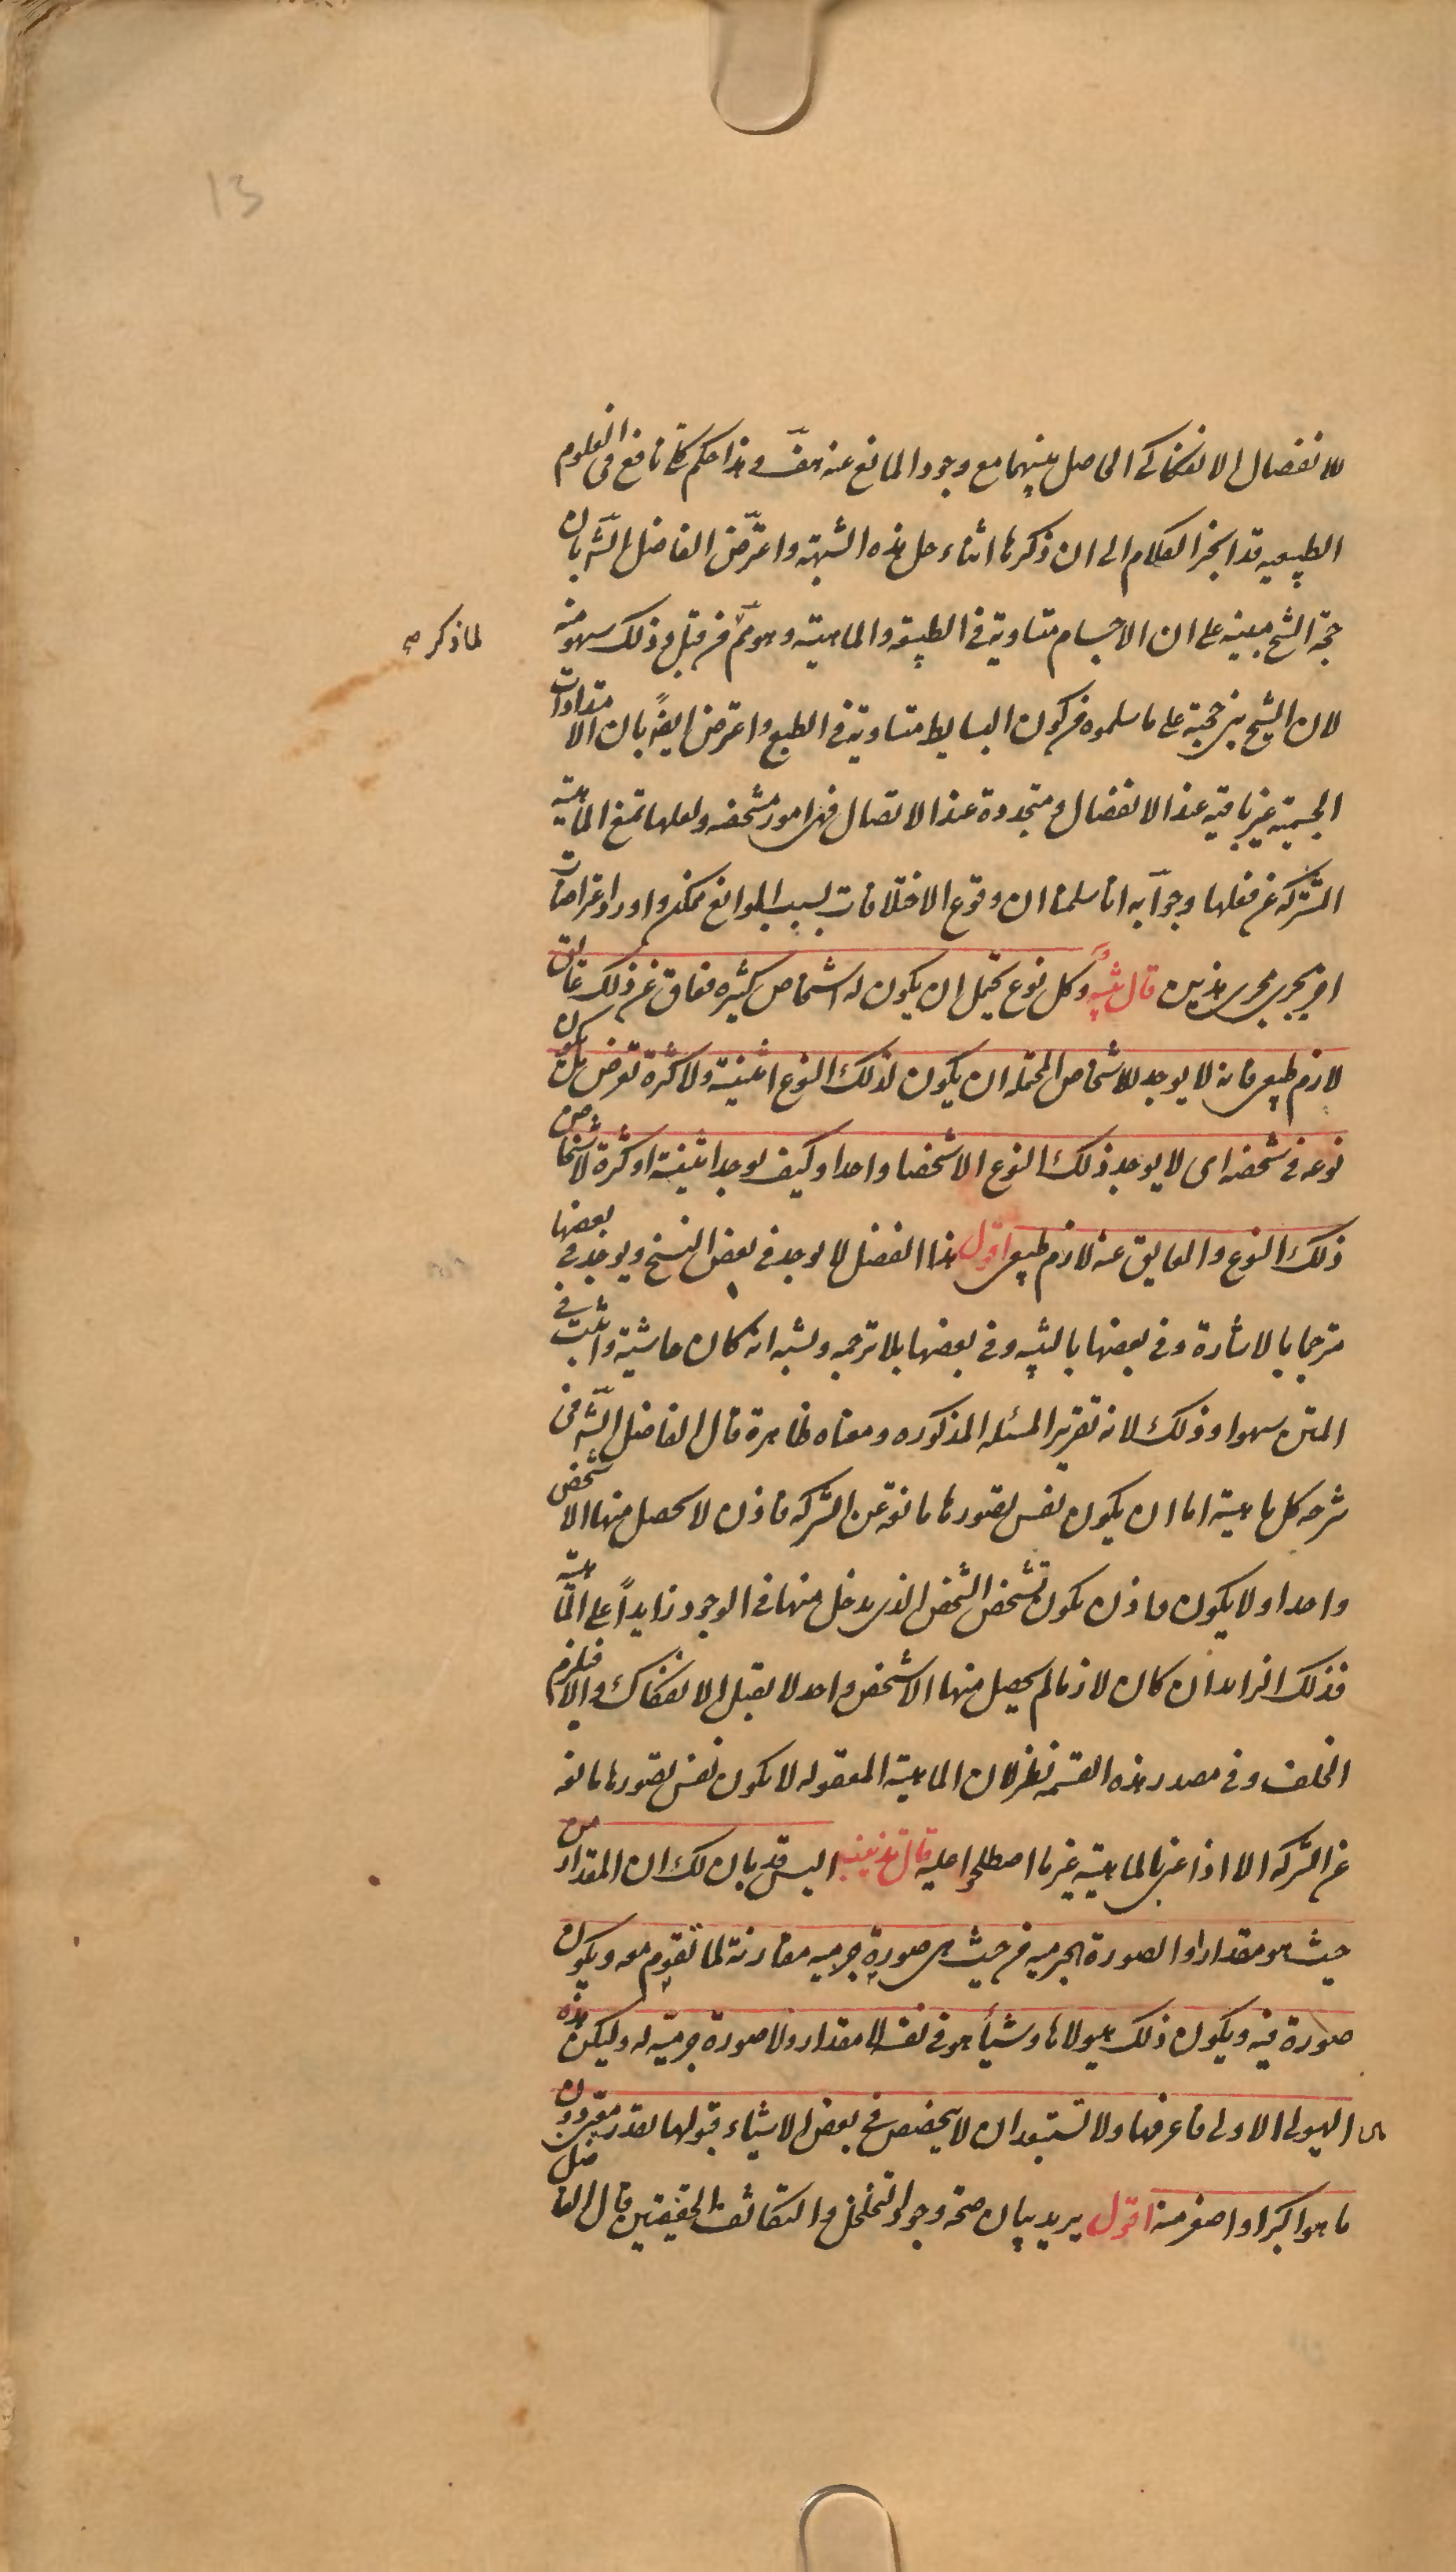 13
للانفصال الانفكاكى الحاصل بينهما مع وجود المانع عنه هف وهذا حكم كلى نافع فى العلوم
الطبيعيه قد انجر الكلام الى ان ذكرها اثناء حل هذه الشبهة واعترض الفاضل الشه بان
حجة الشيخ مبنيه على ان الاجسام متساوية فى الطبيعة والماهية وهو مم من قبل وذلك سهو منه
لما ذكر صه
لان الشيخ بنى حجته على ما سلموه من كون البسايط متساوية فى الطبع واعترض ايضً بان الامتدادات
الجسمية غير باقية عند الانفصال ومتجددة عند الاتصال فهى امور مشخصه ولعلها تمنع الماهية
المشتركه عن فعلها وجوآبه انا سلمنا ان وقوع الاختلافات بسبب الموانع ممكن واورد اعتراضات
اخر يجرى مجرى هذين قال تنبيه وكل نوع يحتمل ان يكون له اشخاص كثيره فعاق عن ذلك عائق
لازم طبيعى فانه لا يوجد للاشخاص المحتمله ان يكون لذلك النوع اثنينية ولا كثرة تعرض بل يكون
نوعه فى شخصه اى لا يوجد ذلك النوع الا شخصا واحدا وكيف يوجد اثنينية او كثرة لاشخاص
ذلك النوع والعايق عنه لازم طبيعى اقول هذا الفصل لا يوجد فى بعض النسخ ويوجد فى بعضها
مترجما بالاشارة وفى بعضها بالتنبيه وفى بعضها بلا ترجمه ويشبه انه كان حاشية واثبت فى
المتن سهوا وذلك لانه تقرير المسئله المذكوره ومعناه ظاهرة قال الفاضل الشه فى
شرحه كل ماهية اما ان يكون نفس تصورها مانعة عن الشركه فاذن لا يحصل منها الا شخص
واحد او لا يكون فاذن يكون تشخص الشخص الذى يدخل منها فى الوجود زايداً على الماهية
فذلك الزايد ان كان لازما لم يحصل منها الا شخص واحد لا يقبل الانفكاك والا فيلزم
الخلف وفى مصدر هذه القسمه نظر لان الماهية المعقوله لا يكون نفس تصورها مانعه
عن الشركه الا اذا عنى بالماهية غير ما اصطلحوا عليه قال تذنيب اليس قد بان لك ان المقدار من
حيث هو مقدار او الصورة الجرميه من حيث هى صورة جرميه مقارنة لما تقوم معه ويكون
صورة فيه ويكون ذلك هيولاها وشيأ هو فى نفسه لا مقدار ولا صورة جرمية له وليكن هذه
هى الهيولى الاولى فاعرفها ولا تستبعد ان لا يتخصص فى بعض الاشياء قبولها لقدر معين دون
ما هو اكبر او اصغر منه اقول يريد بيان صحة وجود التخلخل والتكاثف الحقيقيين قال الفاضل